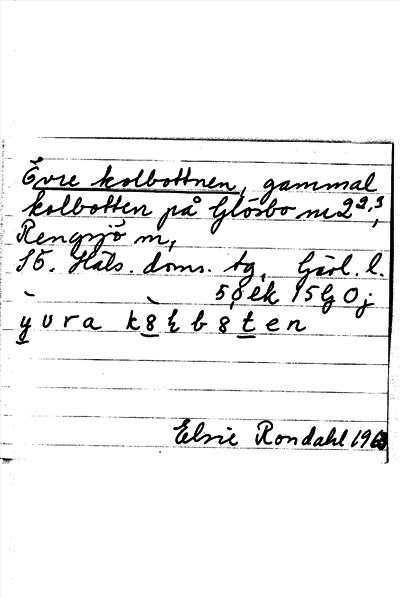 Övre kolbottnen, gammal
kolbotten på Glösbo nr 2 2,3,
Rengsjö sn,
Sö. Häls. doms. tg, Gävl. l.
5,8 ek 15G 0j
yvra kȣɫbȣten
Elsie Rondahl 1963